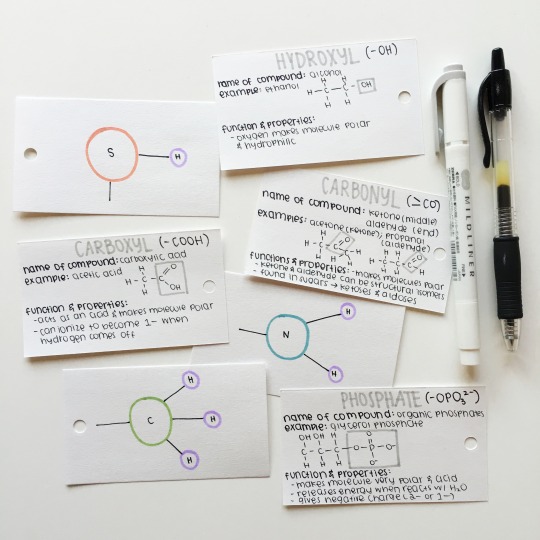 HYDROXYL (-OH)
name of compound: alcohol
example: ethanol
H H
H-C-C-OH
H H
function & properties:
- oxygen makes molecule polar
& hydrophilic
S H
CARBONYL (≥CO)
name of compound: ketone (middle)
aldehyde (end)
examples: acetone (ketone), propanal
(aldehyde)
functions & properties: -makes molecules polar
- ketone & aldehyde can be structural isomers
- found in sugars → ketoses & aldoses
CARBOXYL (-COOH)
name of compound: carboxylic acid
example: acetic acid
H O
H-C-C
H OH
function & properties:
-acts as an acid & makes molecule polar
- can ionize to become 1- when
hydrogen comes off
MILDLINER
H
N
H
H
C H
H
PHOSPHATE (-OPO₃²⁻)
name of compound: organic phosphates
example: glycerol phosphate
OH OH H O
C-C-C-O-P-O-
H H H O-
function & properties:
- makes molecule very polar & acid
- releases energy when reacts w/ H₂O
- gives negative charge (2- or 1-)